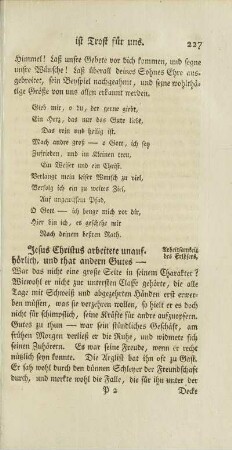 ist Trost für uns. 227
Himmel! Laß unsre Gebete vor dich kommen, und segne
unsre Wünsche! Laß überall deines Sohnes Ehre aus-
gebreitet, sein Beyspiel nachgeahmt, und seine wohlthä-
tige Größe von uns allen erkannt werden.
Gieb mir, o du, der gerne giebt,
Ein Herz, das nur das Gute liebt,
Das rein und heilig ist.
Mach andre groß — o Gott, ich sey
Zufrieden, und im Kleinen treu,
Ein Weiser und ein Christ.
Verlangt mein leser Wunsch zu viel,
Verfolg ich ein zu weites Ziel,
Auf ungewissem Pfad,
O Gott — ich beuge mich vor dir,
Hier bin ich, es geschehe mir
Nach deinem besten Rath.
Jesus Christus arbeitete unauf-
hörlich, und that andern Gutes —
Arbeitsamkeit
des Erlösers,
War das nicht eine große Seite in seinem Charakter?
Wiewohl er nicht zur untersten Classe gehörte, die alle
Tage mit Schweiß und abgezehrten Händen erst erwer-
ben müssen, was sie verzehren wollen, so hielt er es doch
nicht für schimpflich, seine Kräfte für andre aufzuopfern.
Gutes zu thun — war sein stündliches Geschäft, am
frühen Morgen verließ er die Ruhe, und widmete sich
seinen Zuhörern. Es war seine Freude, wenn er recht
nützlich seyn konnte. Die Arglist bat ihn oft zu Gast.
Er sah wohl durch den dünnen Schleyer der Freundschaft
durch, und merkte wohl die Falle, die für ihn unter der
P 2 Decke